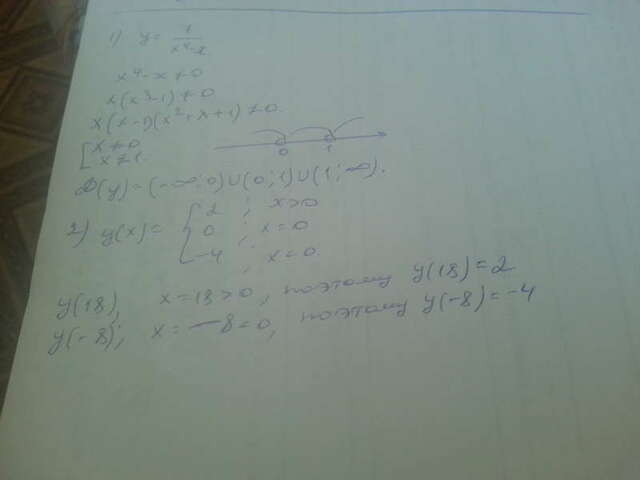 1) y = 1/(x⁴-x)
x⁴-x ≠ 0
x(x³-1) ≠ 0
x(x-1)(x²+x+1) ≠ 0.
[x ≠ 0
x ≠ 1.
0 1
D(y) = (-∞; 0) ∪ (0; 1) ∪ (1; ∞).
2) y(x) = { 2 ; x>0
0 ; x=0
-4 ; x=0.
y(18), x=18>0, поэтому y(18)=2
y(-8); x=-8=0, поэтому y(-8)=-4